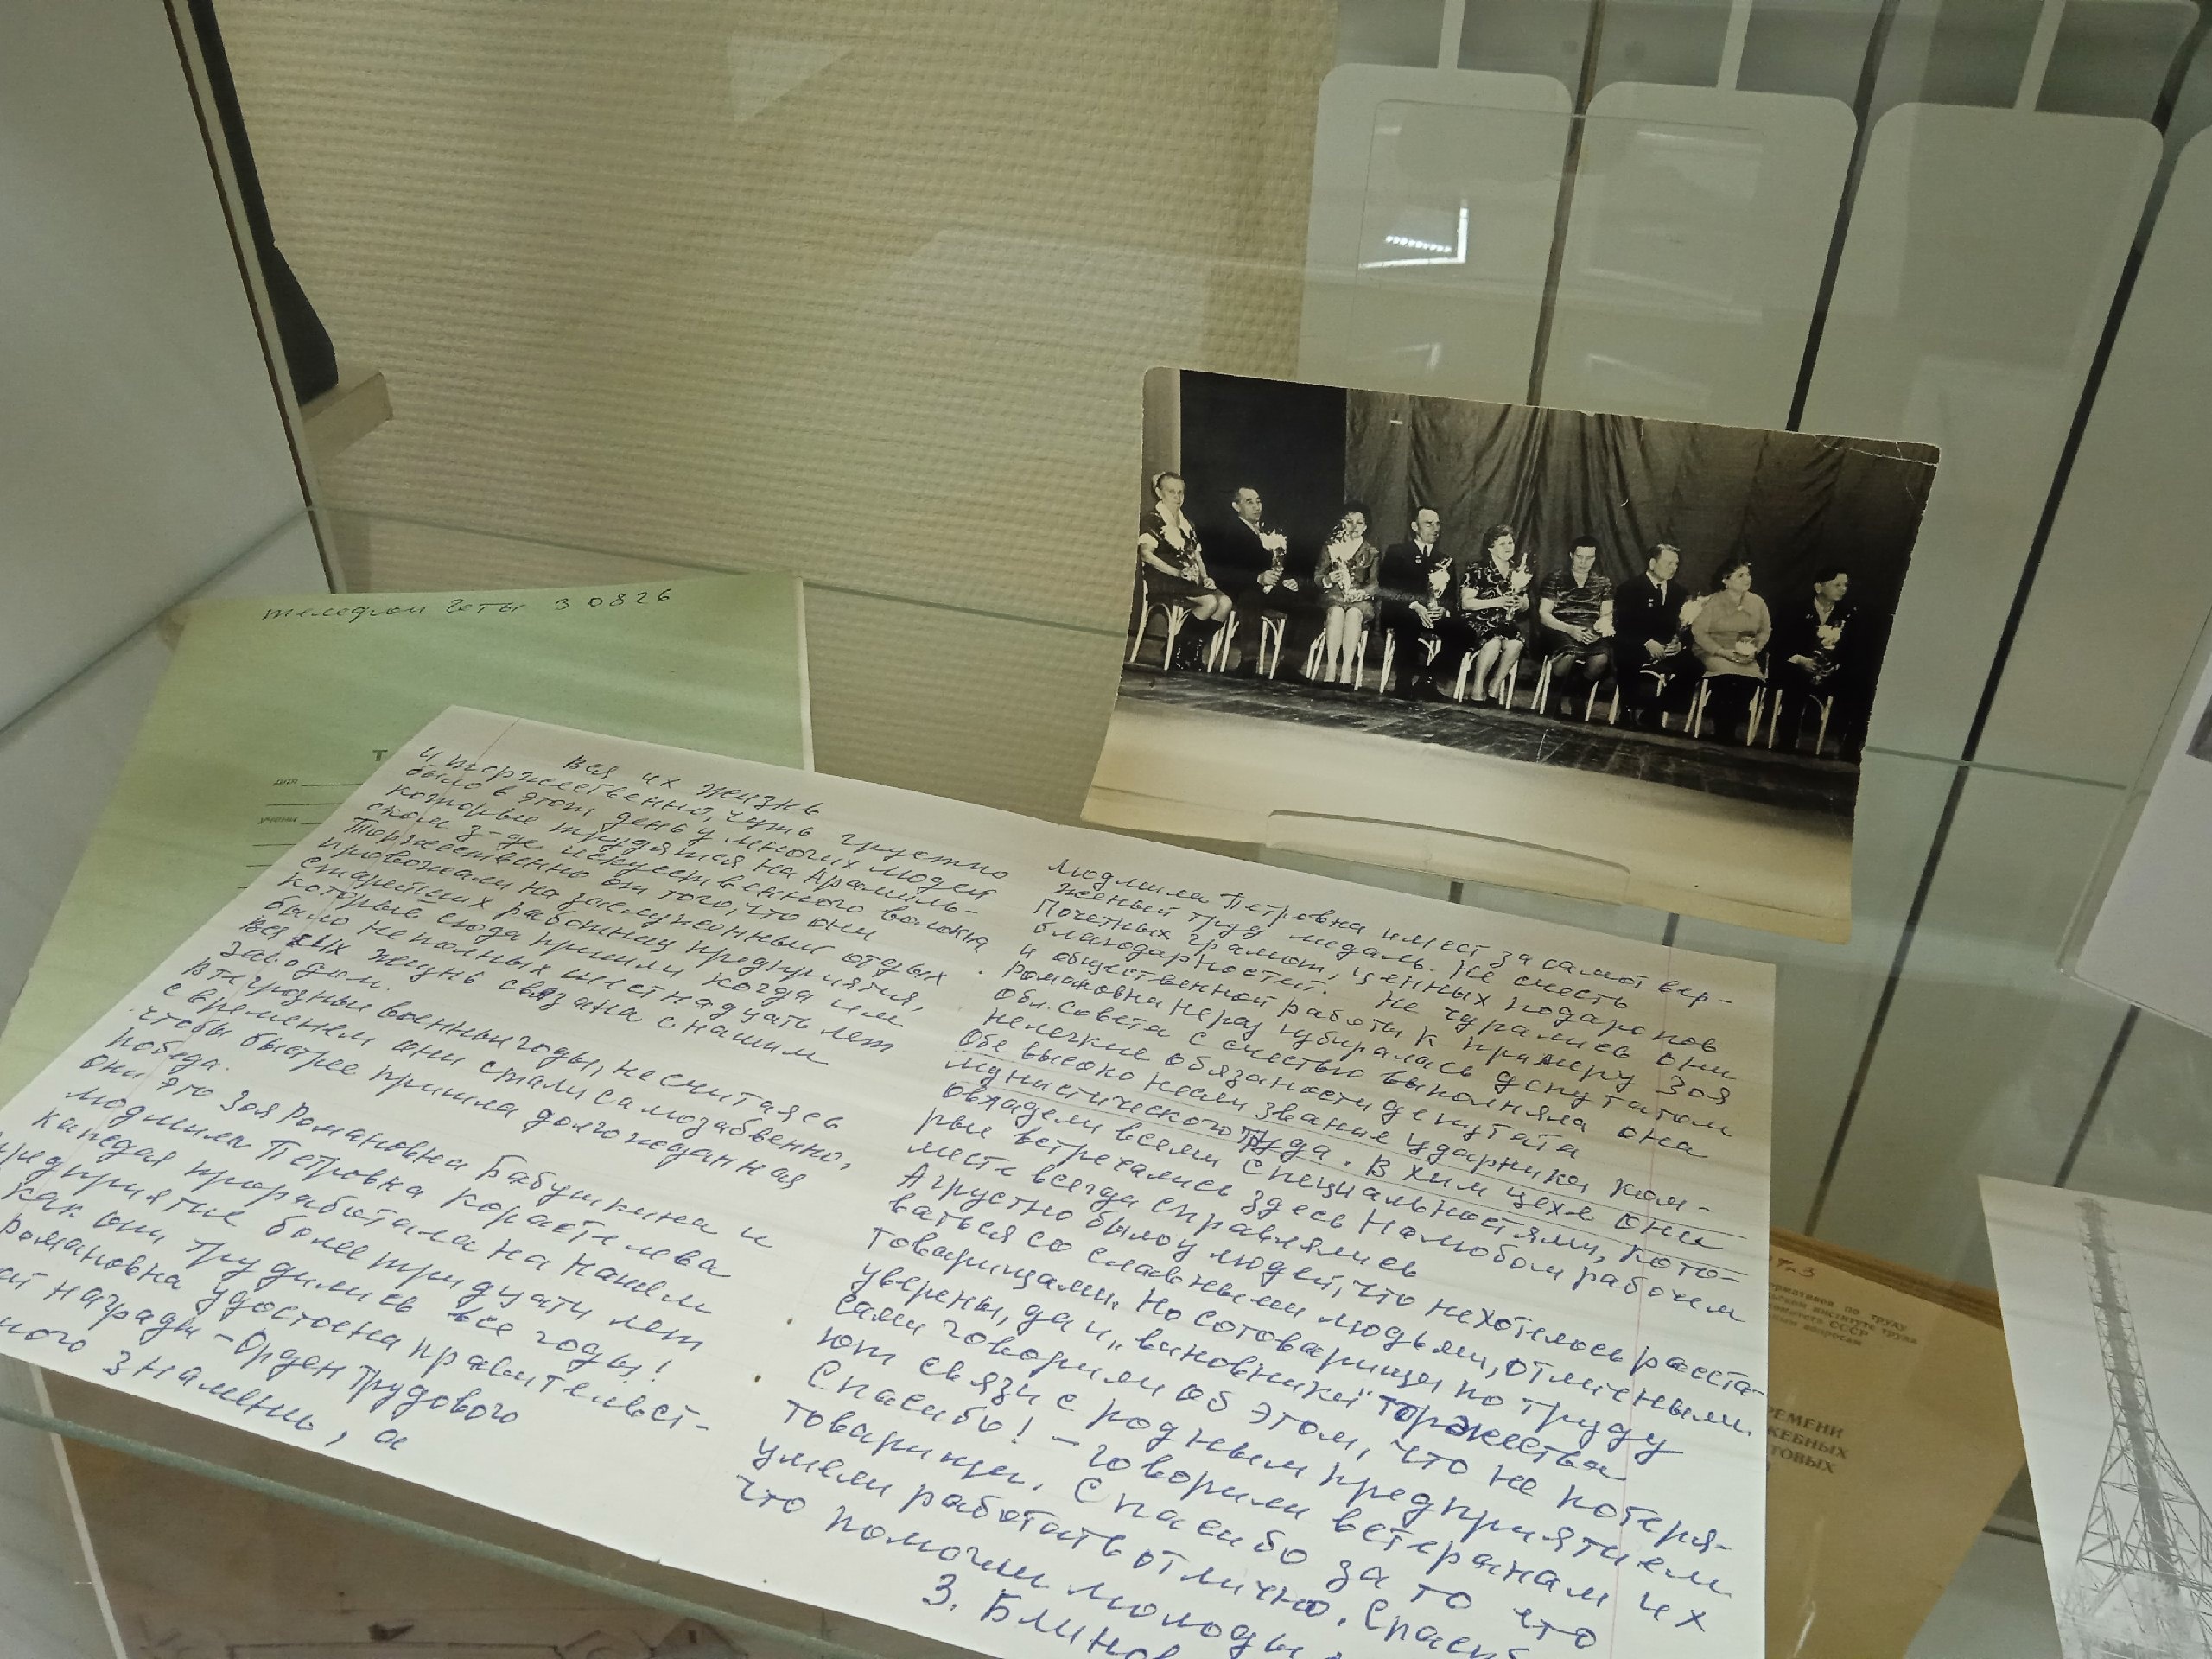 телефон Четы 3 0826
Вся их жизнь
И торжественно, чуть грустно
было в этот день у многих людей
которые трудятся на Арамиль-
ском з-де искусственного волокна.
Торжественно от того, что они
провожали на заслуженный отдых
старейших работниц предприятия,
которые сюда пришли когда им
было неполных шестнадцать лет
Вся их жизнь связана с нашим
заводом.
В те грозные военные годы, не считаясь
с временем они самозабвенно,
чтобы быстрее пришла долгожданная
победа.
Они это Зоя Романовна Бабушкина и
Людмила Петровна Коростелева
Каждая проработала на нашем
предприятие более тридцати лет
Как они трудились все годы!
Романовна удостоена правительст-
награды - Орден Трудового
ного знамени, а
Людмила Петровна имеет за самоотвер-
женный труд медаль. Не счесть
Почетных грамот, ценных подарков
благодарностей. Не чурались они
и общественной работы к примеру Зоя
Романовна нераз избиралась депутатом
Обл. совета с честью выполняла она
нелегкие обязаности депутата
Обе высоко несли звание ударника ком-
мунистического труда. В хим цехе они
овладели всеми специальностями, кото-
рые встречались здесь На любом рабочем
месте всегда справлялись
А грустно было у людей, что не хотелось расста-
ваться со славными людьми, отличными
товарищами. Но сотоварищи по труду
уверены, да и „виновники" торжества
сами говорили об этом, что не потеря-
ют связи с родным предприятием
Спасибо! - говорили ветеранам их
товарищи. Спасибо за то что
умели работать отлично. Спасиб
что помогли молоды
З. Блинов
Т
дата
учени
ормативов по труду
СССР
вопросам
РЕМЕНИ
ЖЕБНЫХ
ТОВЫХ